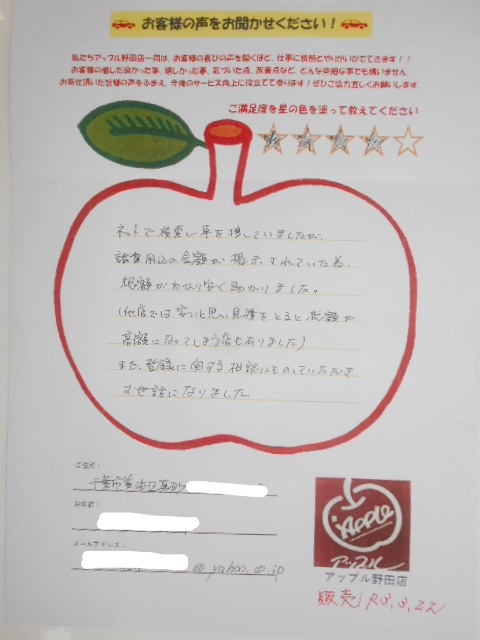 お客様の声をお聞かせください！
私たちアップル野田店一同は、お客様の喜びの声を聞くほど、仕事に情熱とやりがいがでてきます！！
お客様の感じた良かった事、嬉しかった事、気づいた点、改善点など、どんな些細な事でも構いません。
お寄せ頂いた皆様の声をふまえ、今後のサービス向上に役立てて参ります！ぜひご協力宜しくお願いします。
ご満足度を星の色を塗って教えてください
ネットで検索し車を探していましたが、
諸費用込の金額が掲示されていた為、
総額がわかり安く助かりました。
(他店では安いと思い見積をとると総額が
高額になってしまう店もありました)
また、登録に関する相談にものっていただき
お世話になりました
ご住所：
千葉市美浜区真砂
お名前：
メールアドレス：
@yahoo.co.jp
APPLE
アップル
アップル野田店
販売 R3.3.22